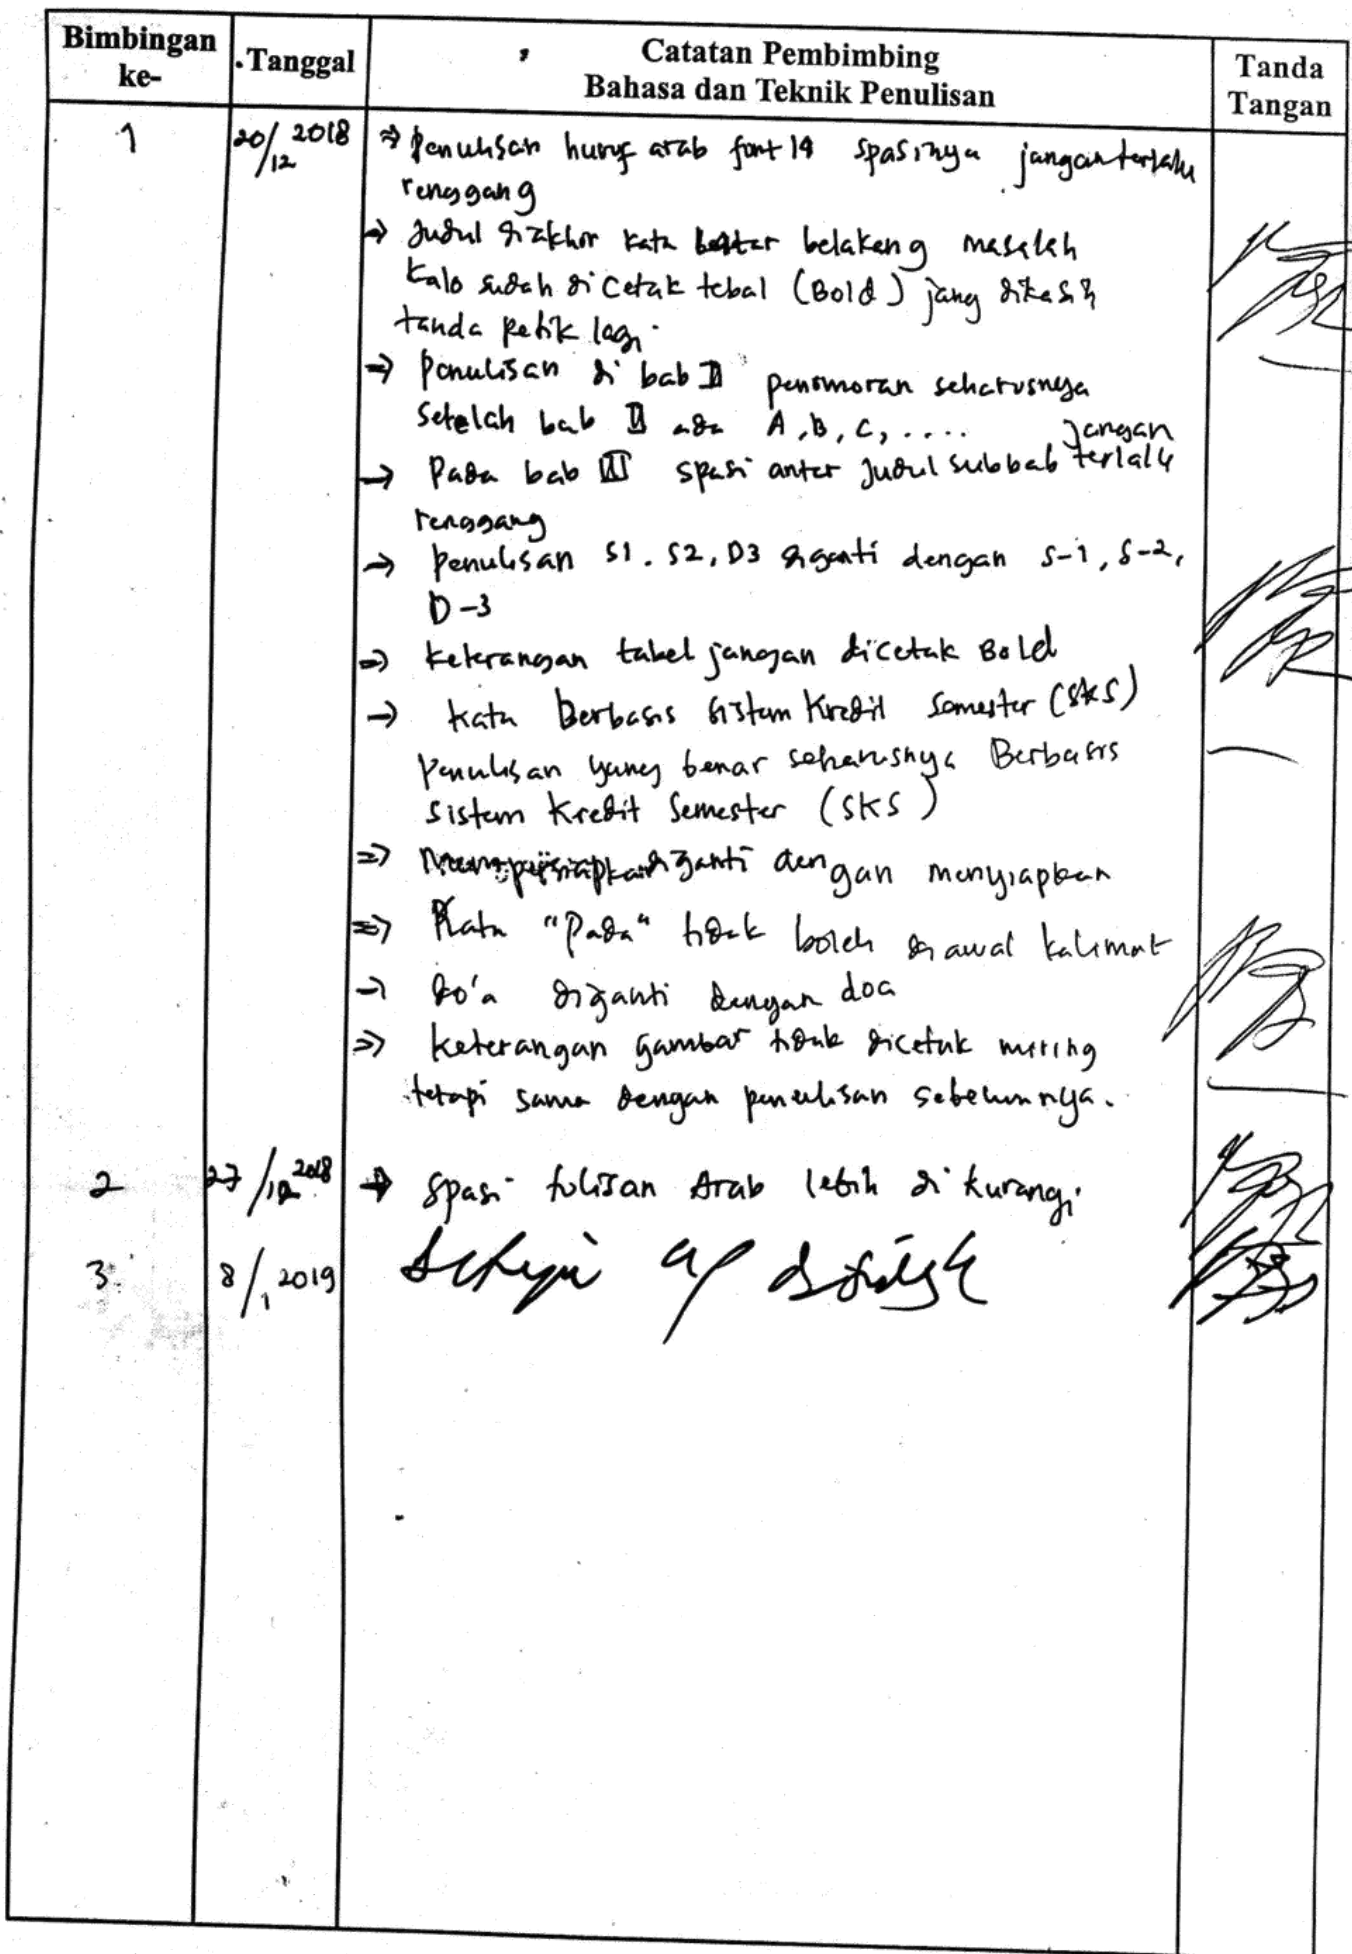 Bimbingan ke-
Tanggal
Catatan Pembimbing
Bahasa dan Teknik Penulisan
Tanda
Tangan
1
20/12 2018
⇒ penulisan huruf arab font 14 spasinya jangan terlalu
renggang
⇒ Judul diakhir kata latar belakang masalah
kalo sudah dicetak tebal (Bold) jang dikasih
tanda petik lagi.
⇒ penulisan di bab II penomoran seharusnya
setelah bab II ada A, B, C, ....
→ Pada bab III spasi antar judul subbab jangan terlalu
renggang
→ penulisan S1. S2, D3 diganti dengan S-1, S-2,
D-3
⇒ keterangan tabel jangan dicetak Bold
→ kata Berbasis sistem Kredit Semester (sks)
penulisan yang benar seharusnya Berbasis
Sistem Kredit Semester (SKS)
⇒ Mempersiapkan diganti dengan menyiapkan
⇒ Kata "Pada" tidak boleh di awal kalimat
→ do'a diganti dengan doa
⇒ keterangan gambar tidak dicetak miring
tetapi sama dengan penulisan sebelumnya.
2
27/12 2018
→ Spasi tulisan Arab lebih di kurangi
3.
8/1 2019